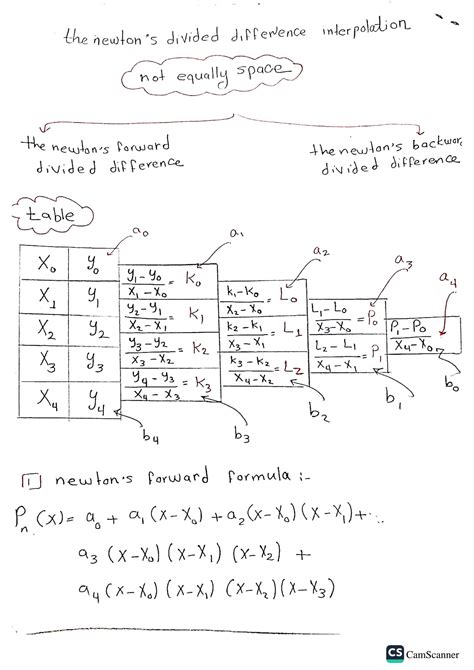 the newton's divided difference interpolation
not equally space
the newton's forward
divided difference
the newton's backwar
divided difference
table
a₀ a₁ a₂ a₃ a₄
X₀ y₀
X₁ y₁
X₂ y₂
X₃ y₃
X₄ y₄
(y₁-y₀)/(X₁-X₀) = K₀
(y₂-y₁)/(X₂-X₁) = K₁
(y₃-y₂)/(X₃-X₂) = K₂
(y₄-y₃)/(X₄-X₃) = K₃
(k₁-k₀)/(X₂-X₀) = L₀
(k₂-k₁)/(X₃-X₁) = L₁
(k₃-k₂)/(X₄-X₂) = L₂
(L₁-L₀)/(X₃-X₀) = P₀
(L₂-L₁)/(X₄-X₁) = P₁
(P₁-P₀)/(X₄-X₀)
b₄ b₃ b₂ b₁ b₀
1 newton's forward formula :-
Pₙ(x) = a₀ + a₁(x-X₀) + a₂(x-X₀)(x-X₁)+...
a₃(x-X₀)(x-X₁)(x-X₂) +
a₄(x-X₀)(x-X₁)(x-X₂)(x-X₃)
CS CamScanner